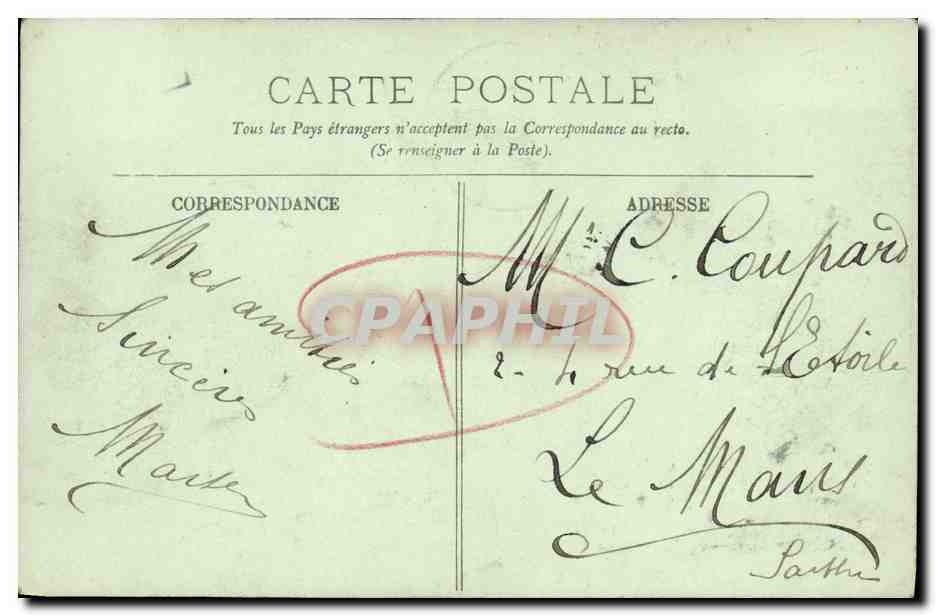 CARTE POSTALE
Tous les Pays étrangers n'acceptent pas la Correspondance au recto.
(Se renseigner à la Poste).
CORRESPONDANCE
Mes amitiés
Sincères
ADRESSE
M C. Coupard
2 - 4 rue de L'Etoile
Le Mans
Sarthe
CPAPHIL